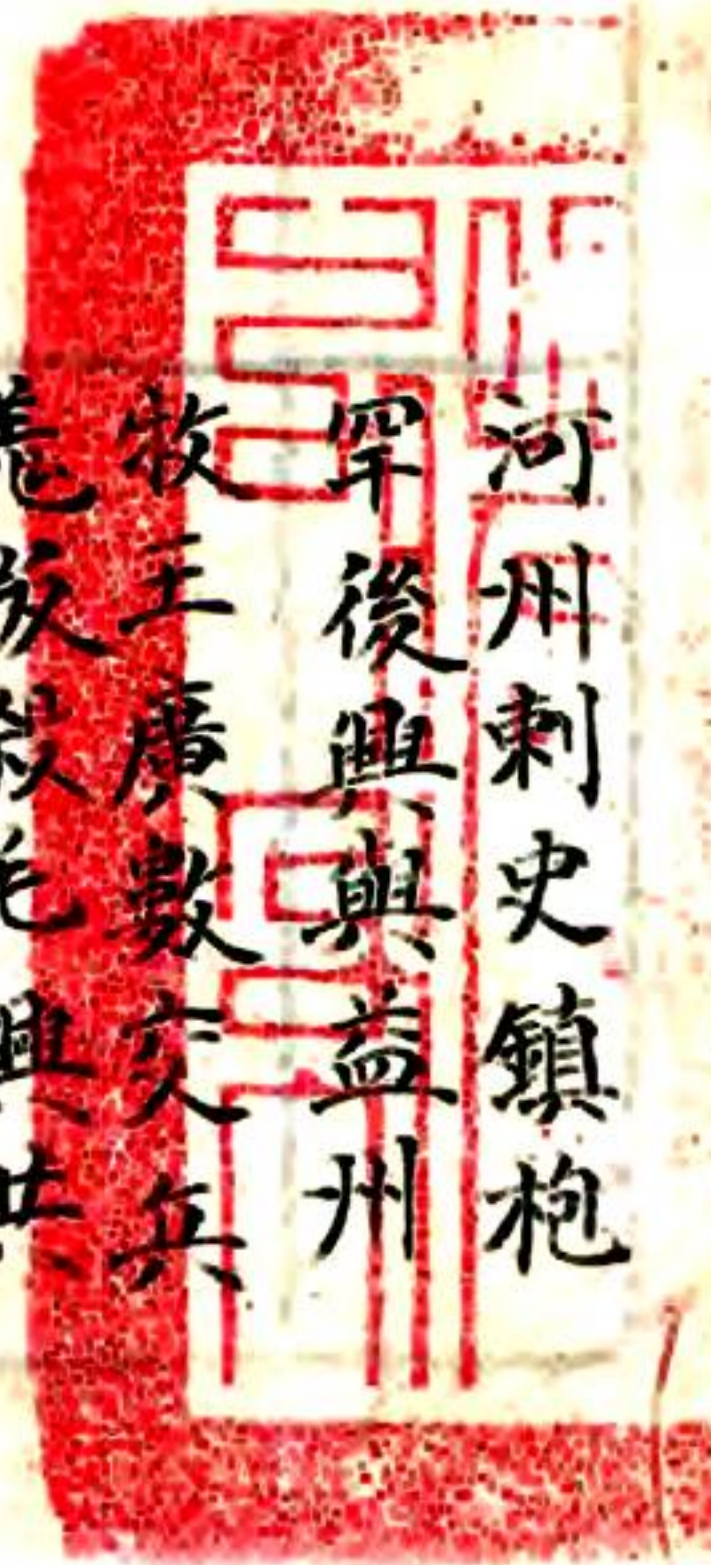 河州刺史鎮枹
罕後興與益州
牧王廣數交兵
毛興